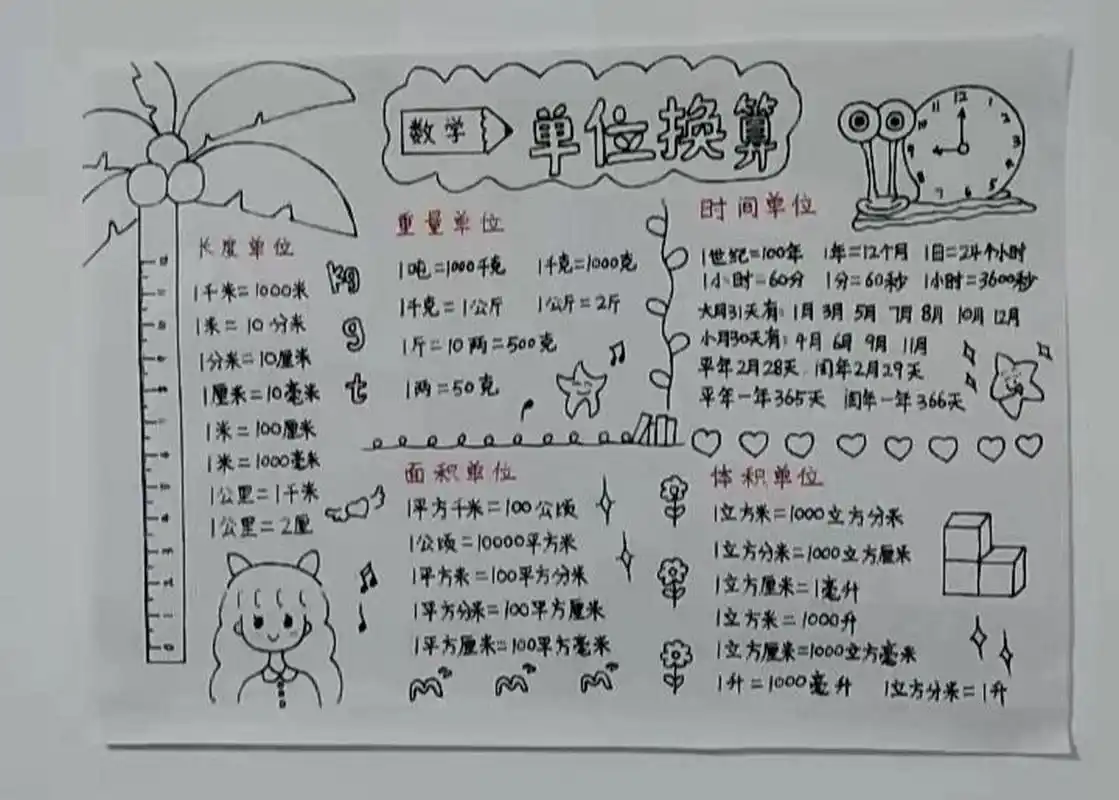 数学
单位换算
长度单位
1千米=1000米
1米=10分米
1分米=10厘米
1厘米=10毫米
1米=100厘米
1米=1000毫米
1公里=1千米
1公里=2里
kg
g
t
重量单位
1吨=1000千克 1千克=1000克
1千克=1公斤 1公斤=2斤
1斤=10两=500克
1两=50克
时间单位
1世纪=100年 1年=12个月 1日=24个小时
1小时=60分 1分=60秒 1小时=3600秒
大月31天有:1月 3月 5月 7月 8月 10月 12月
小月30天有:4月 6月 9月 11月
平年2月28天 闰年2月29天
平年一年365天 闰年一年366天
面积单位
1平方千米=100公顷
1公顷=10000平方米
1平方米=100平方分米
1平方分米=100平方厘米
1平方厘米=100平方毫米
体积单位
1立方米=1000立方分米
1立方分米=1000立方厘米
1立方厘米=1毫升
1立方米=1000升
1立方厘米=1000立方毫米
1升=1000毫升 1立方分米=1升